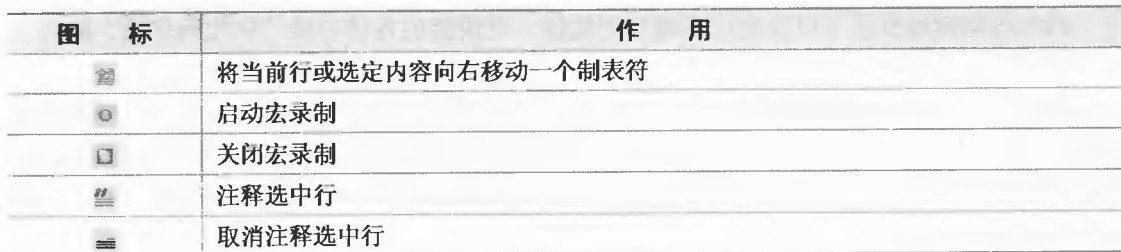 图 标 作 用
将当前行或选定内容向右移动一个制表符
启动宏录制
关闭宏录制
注释选中行
取消注释选中行